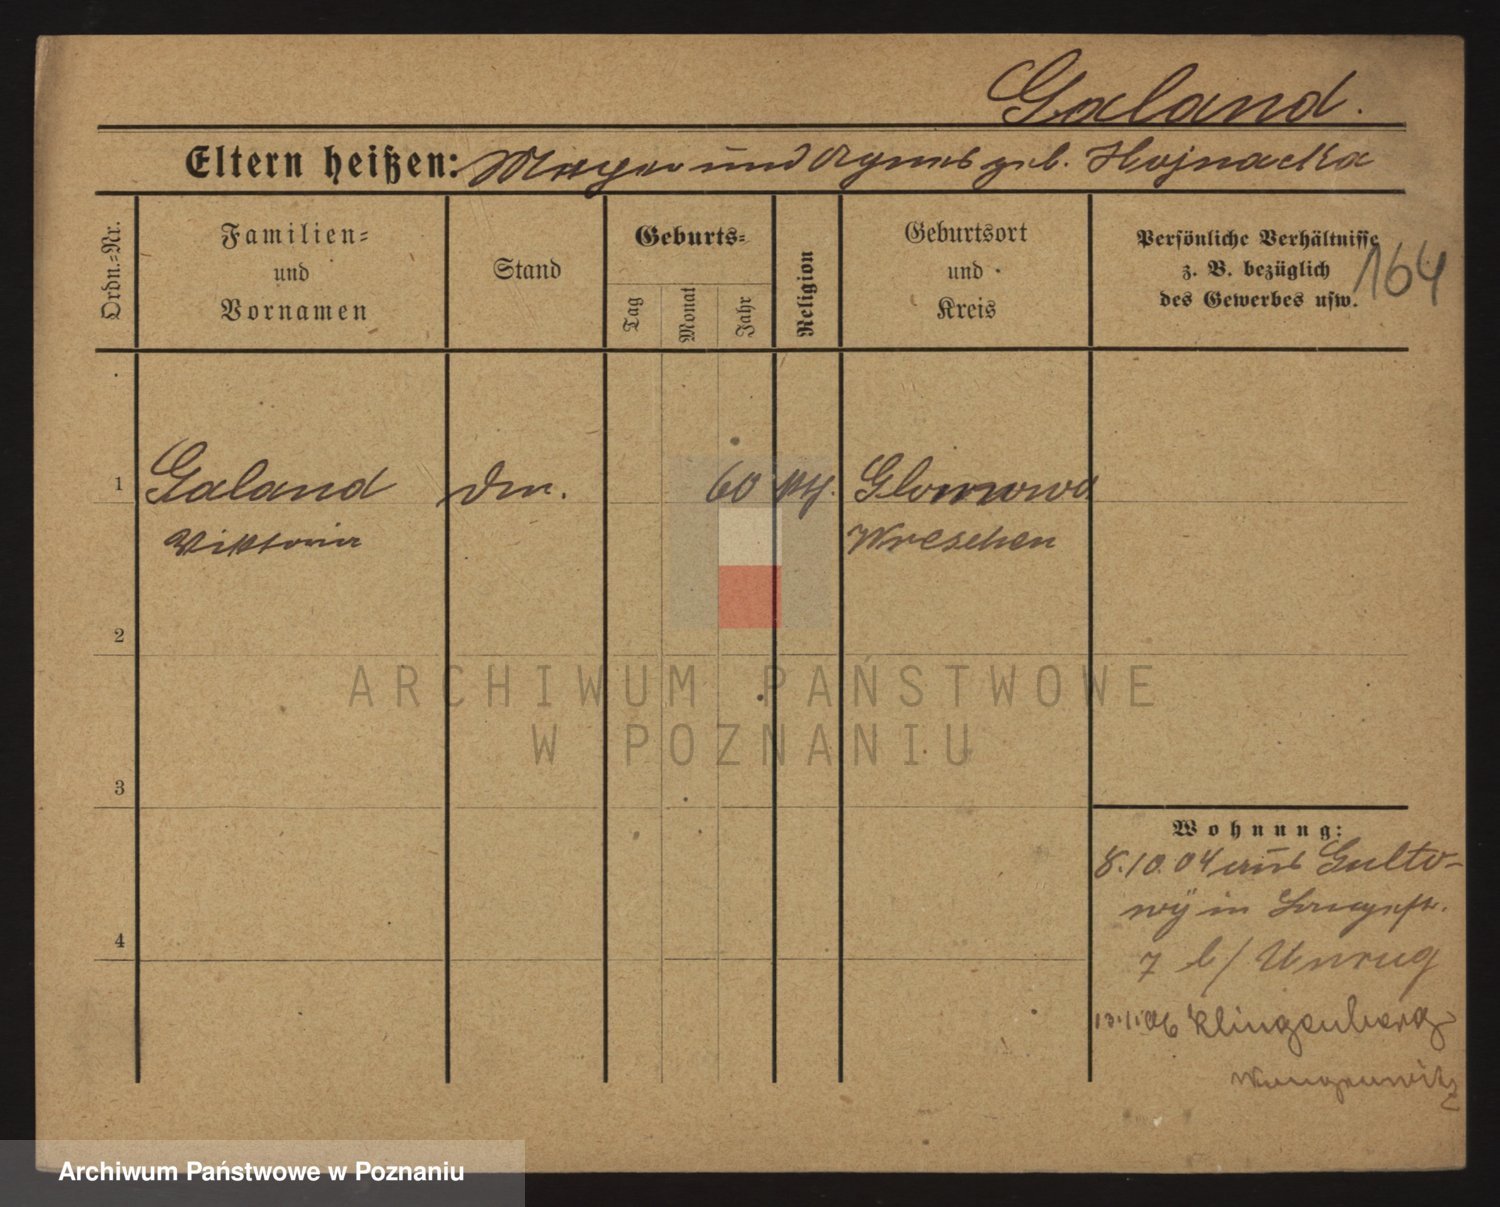 Galand.
Eltern heißen: und Agnes geb. Hojnacka
Ordn.=Nr.
Familien=
und
Vornamen
Stand
Geburts=
Tag
Monat
Jahr
Religion
Geburtsort
und
Kreis
Persönliche Verhältnisse
z. B. bezüglich
des Gewerbes usw.
164
1 Galand 60
Viktoria Wreschen
2
3
4
Wohnung:
8.10.04 aus Gulto-
wÿ in
7 b/ Unrug
13.1.06 Klingenberg
ARCHIWUM PAŃSTWOWE
W POZNANIU
Archiwum Państwowe w Poznaniu